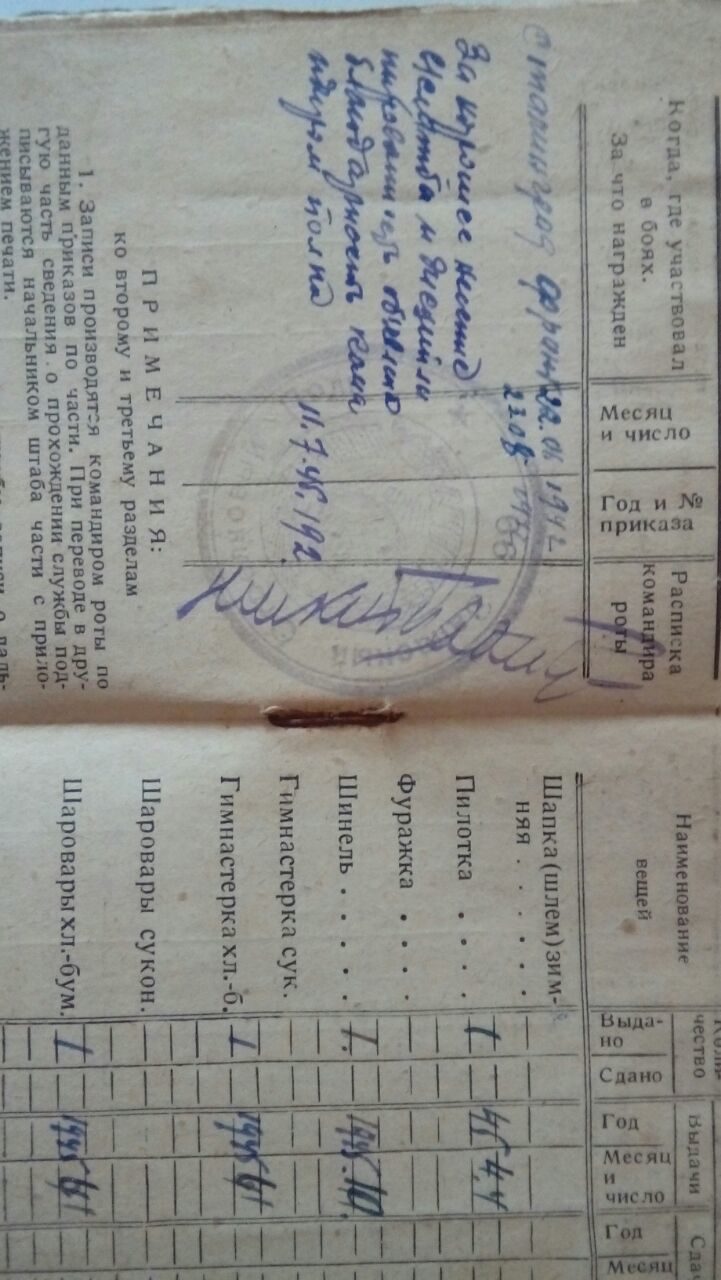 Когда, где участвовал
в боях.
За что награжден
Месяц
и число
Год и №
приказа
Расписка
командира
роты
Сталинград фронт 22.06 1942
22.08 1942
За хорошее
и дисципли
объявлена
благодарность кома
полка
11.7.45. 192
ПРИМЕЧАНИЯ:
ко второму и третьему разделам
1. Записи производятся командиром роты по
данным приказов по части. При переводе в дру-
гую часть сведения о прохождении службы под-
писываются начальником штаба части с прило-
жением печати.
Наименование
вещей
Количество
Выда-
но
Сдано
Выдачи
Год
Месяц
и
число
Сдач
Год
Месяц
Шапка (шлем) зим-
няя . . . . . .
Пилотка . . . . 1 45 4.4
Фуражка . . . .
Шинель . . . . . 1. 1945. 10.
Гимнастерка сук.
Гимнастерка хл.-б. 1 1945
Шаровары сукон.
Шаровары хл.-бум. 1 1945